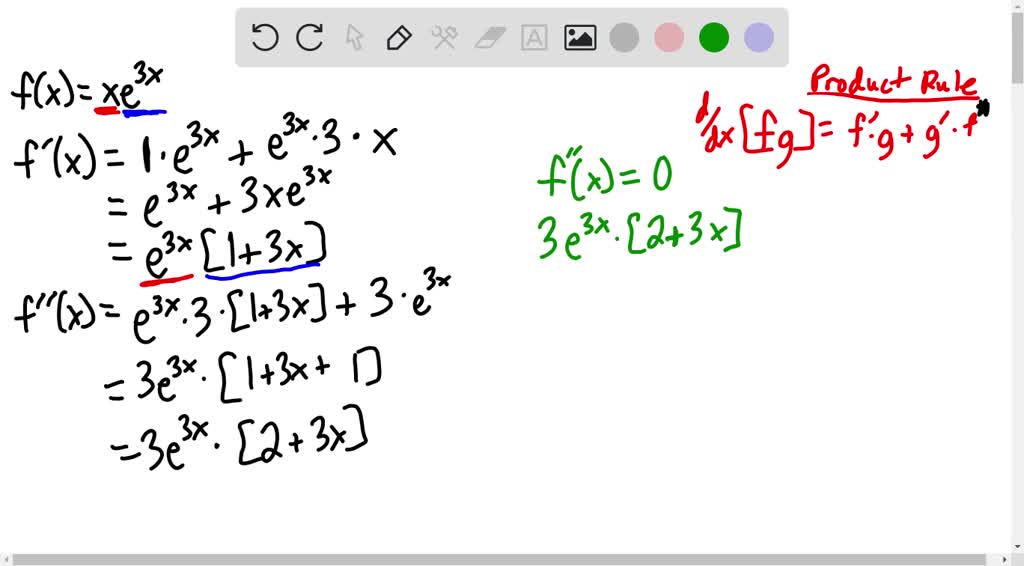 f(x) = xe^{3x}
f'(x) = 1·e^{3x} + e^{3x}·3·x
= e^{3x} + 3xe^{3x}
= e^{3x}[1+3x]
f''(x) = e^{3x}·3·[1+3x] + 3·e^{3x}
= 3e^{3x}·[1+3x+1]
= 3e^{3x}·[2+3x]
Product Rule
d/dx [fg] = f'·g + g'·f
f''(x) = 0
3e^{3x}·[2+3x]
A